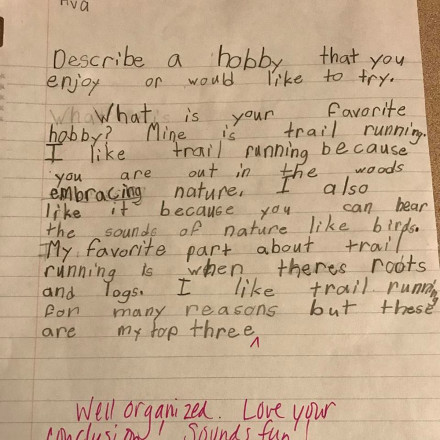 Ava
Describe a hobby that you
enjoy or would like to try.
What is your favorite
hobby? Mine is trail running.
I like trail running because
you are out in the woods
embracing nature. I also
like it because you can hear
the sounds of nature like birds.
My favorite part about trail
running is when theres roots
and logs. I like trail running
for many reasons but these
are my top three
^
Well organized. Love your
conclusion! Sounds fun!